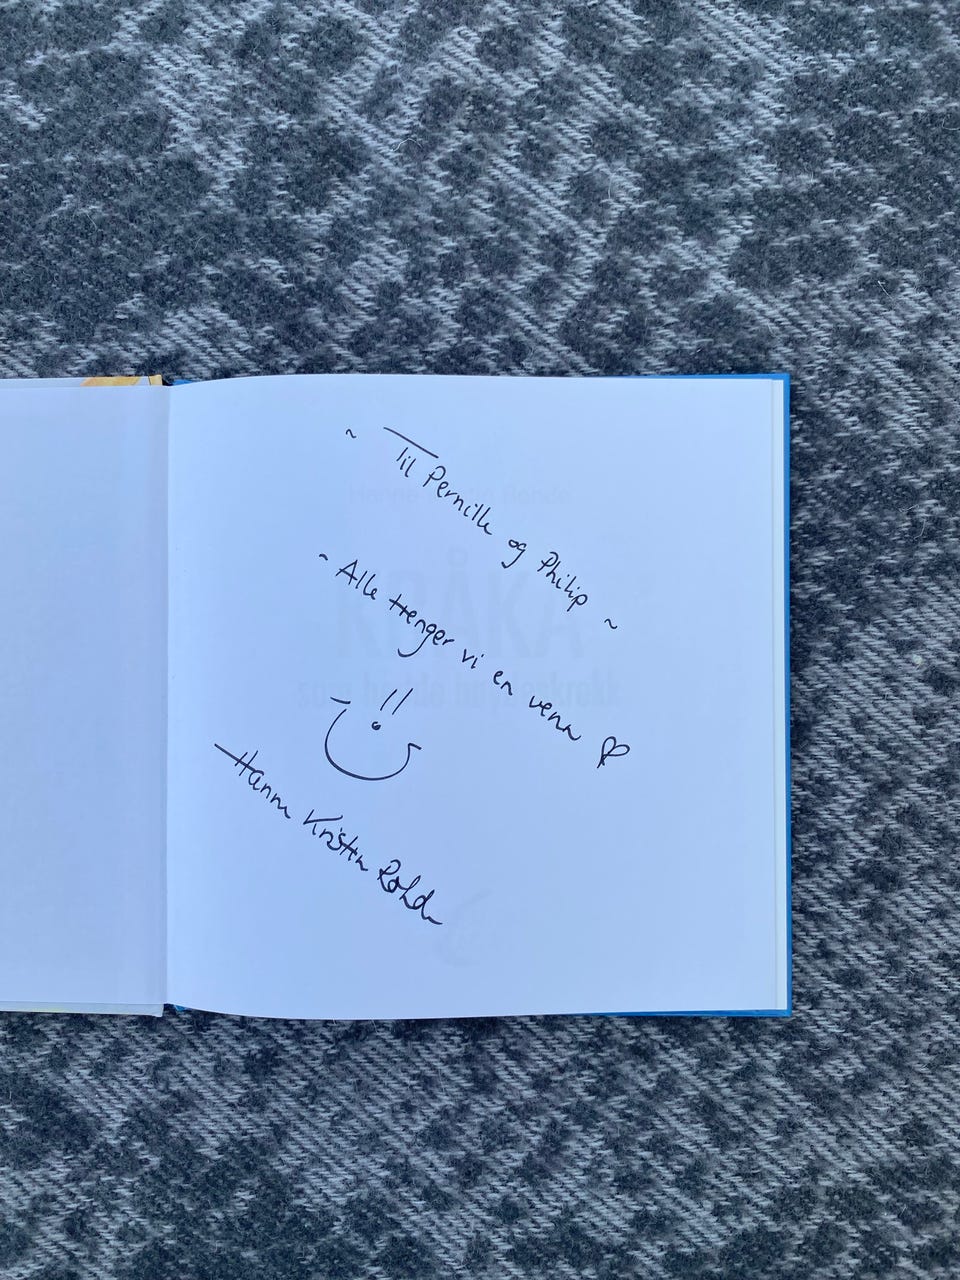 ~ Til Pernille og Philip ~
~ Alle trenger vi en venn ♡
Hanne Kristin Rohde
KRÅKA
som hadde høydeskrekk